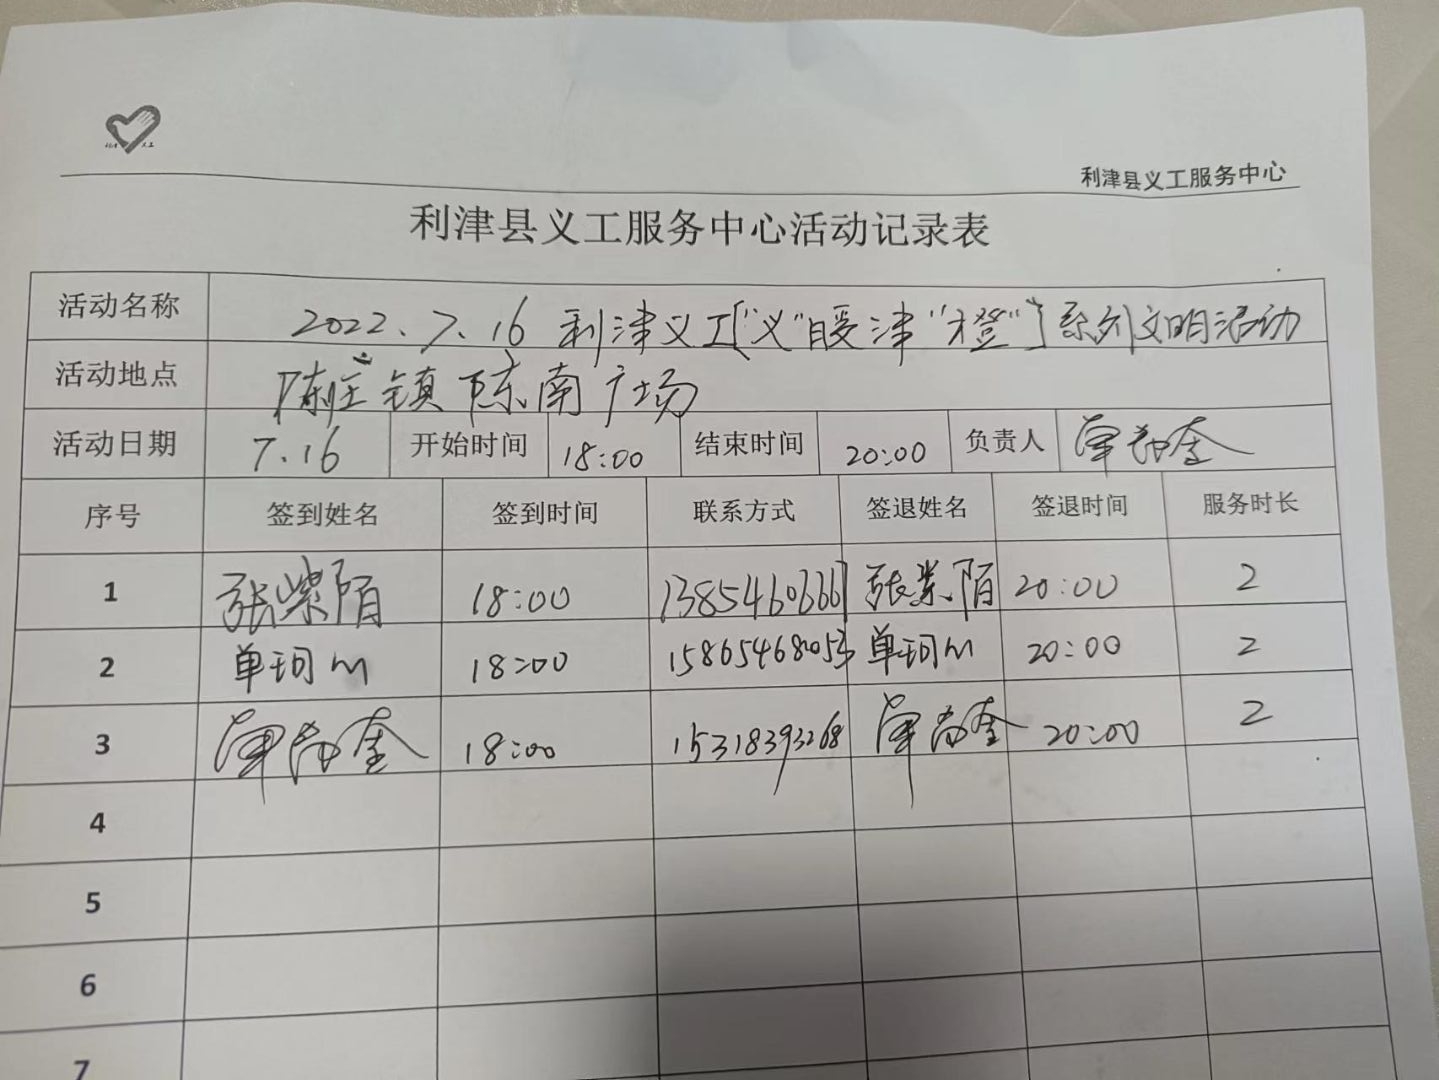 利津县义工服务中心
利津县义工服务中心活动记录表
活动名称 2022.7.16 利津义工["义"暖津"橙"]系列文明活动
活动地点 陈庄镇陈南广场
活动日期 7.16 开始时间 18:00 结束时间 20:00 负责人
序号 签到姓名 签到时间 联系方式 签退姓名 签退时间 服务时长
1 张紫陌 18:00 张紫陌 20:00 2
2 18:00 15865468053 20:00 2
3 18:00 15318393268 20:00 2
4
5
6
7